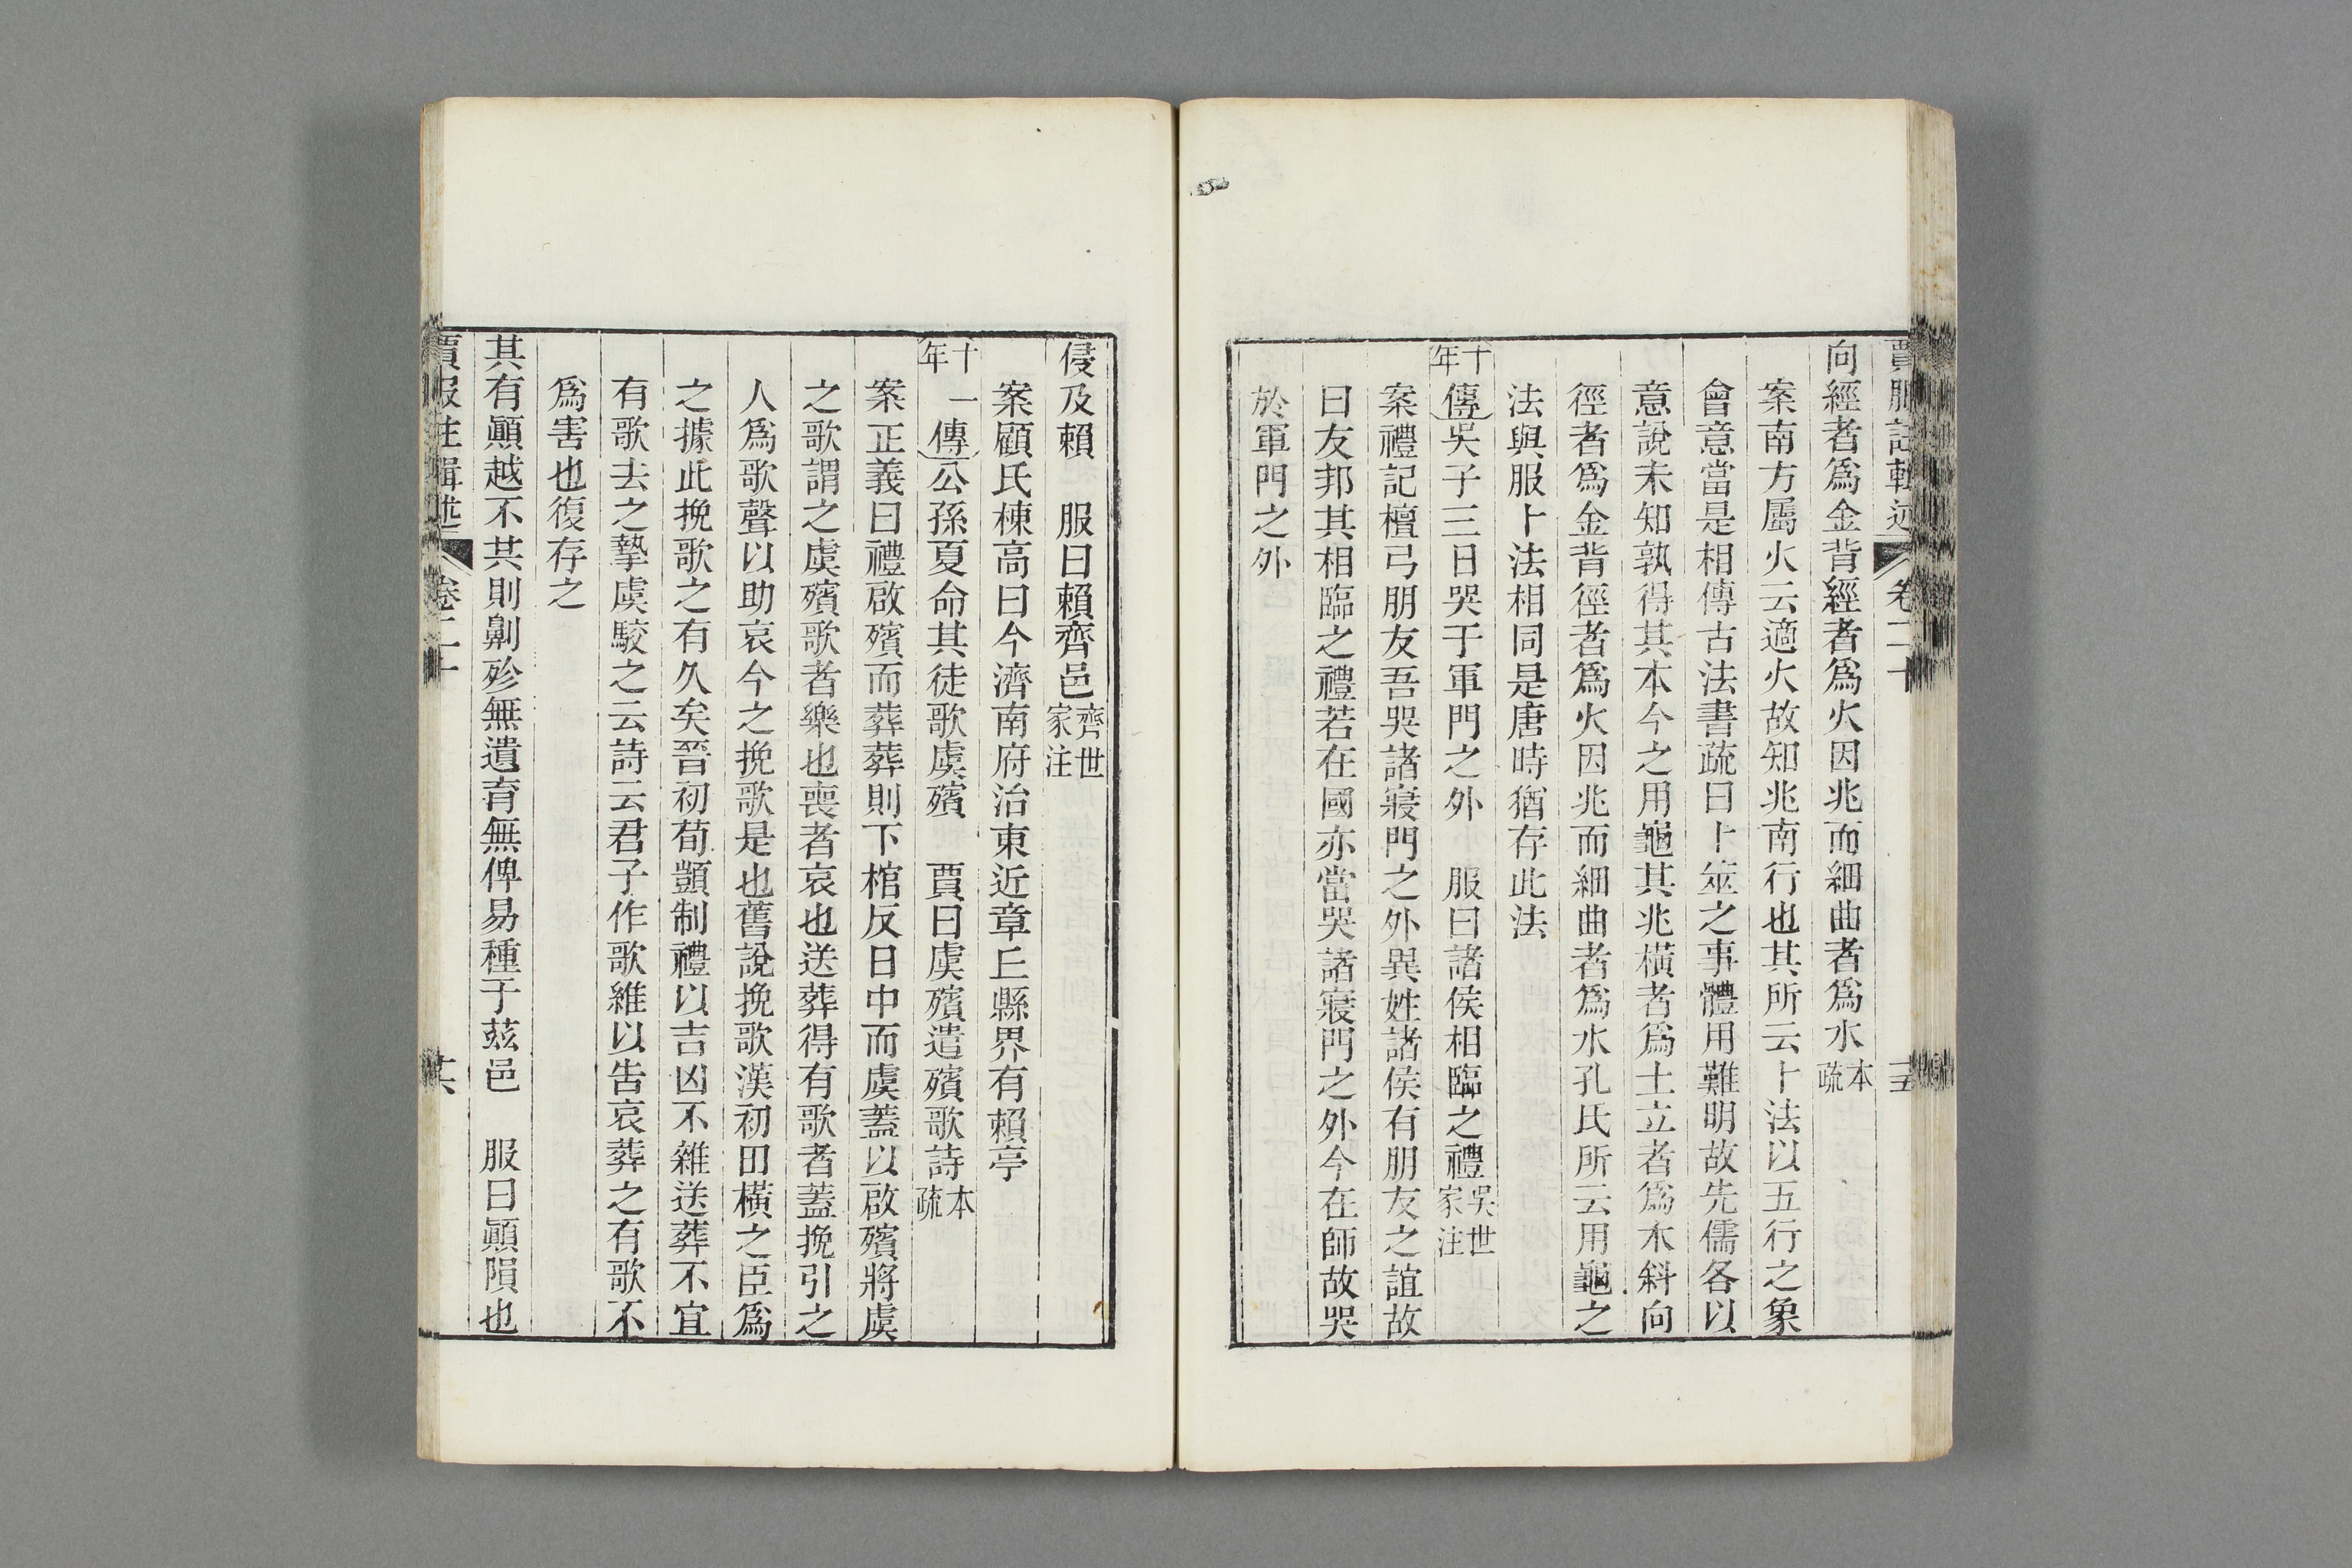 賈服註輯述 卷二十 二五
向經者為金背經者為火因兆而細曲者為水本疏
案南方屬火云適火故知兆南行也其所云卜法以五行之象
會意當是相傳古法書疏曰卜筮之事體用難明故先儒各以
意說未知孰得其本今之用龜其兆橫者為土立者為木斜向
徑者為金背徑者為火因兆而細曲者為水孔氏所云用龜之
法與服卜法相同是唐時猶存此法
十年傳吳子三日哭于軍門之外 服曰諸侯相臨之禮吳世家注
案禮記檀弓朋友吾哭諸寢門之外異姓諸侯有朋友之誼故
曰友邦其相臨之禮若在國亦當哭諸寢門之外今在師故哭
於軍門之外
侵及賴 服曰賴齊邑齊世家注
案顧氏棟高曰今濟南府治東近章丘縣界有賴亭
十一年傳公孫夏命其徒歌虞殯 賈曰虞殯遣殯歌詩本疏
案正義曰禮啟殯而葬葬則下棺反日中而虞蓋以啟殯將虞
之歌謂之虞殯歌者樂也喪者哀也送葬得有歌者蓋挽引之
人為歌聲以助哀今之挽歌是也舊說挽歌漢初田橫之臣為
之據此挽歌之有久矣晉初荀顗制禮以吉凶不雜送葬不宜
有歌去之摯虞駮之云詩云君子作歌維以告哀葬之有歌不
為害也復存之
其有顚越不共則劓殄無遺育無俾易種于茲邑 服曰顚隕也
賈服註輯述 卷二十 廿六